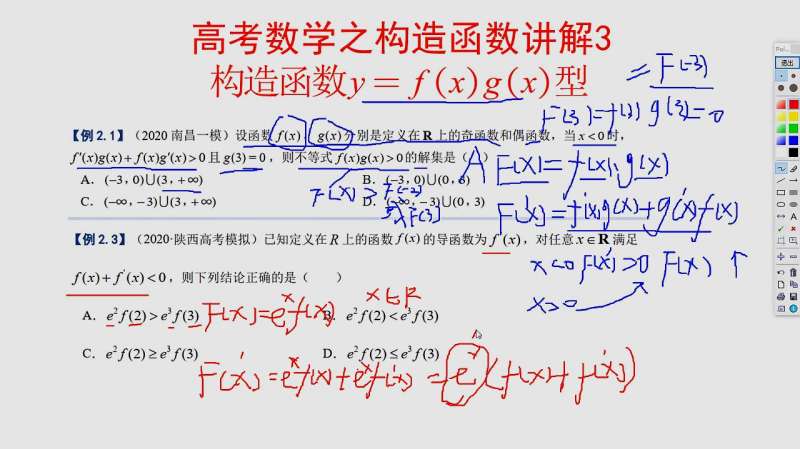 高考数学之构造函数讲解3
构造函数y = f (x)g(x)型
= F(-3)
F(3)=f(3)g(3)=0
【例 2.1】（2020 南昌一模）设函数 f(x)，g(x)分别是定义在 R 上的奇函数和偶函数，当 x < 0 时，
f′(x)g(x) + f(x)g′(x) > 0 且 g(3) = 0，则不等式 f(x)g(x) > 0 的解集是（ ）
A
F(x)=f(x)g(x)
A．(−3, 0)∪(3, +∞)
B．(−3, 0)∪(0, 3)
C．(−∞, −3)∪(3, +∞)
D．(−∞, −3)∪(0, 3)
F(x) > F(-3)
F(3)
F′(x)=f′(x)g(x)+g′(x)f(x)
x<0 F′(x)>0 F(x) ↑
x>0
【例 2.3】（2020·陕西高考模拟）已知定义在 R 上的函数 f(x) 的导函数为 f′(x)，对任意 x∈R 满足
f(x) + f′(x) < 0，则下列结论正确的是（ ）
A．e²f(2) > e³f(3)
B．e²f(2) < e³f(3)
F(x)=eˣf(x)
x∈R
C．e²f(2) ≥ e³f(3)
D．e²f(2) ≤ e³f(3)
F′(x)=eˣf(x)+eˣf′(x)=eˣ(f(x)+f′(x))
退出